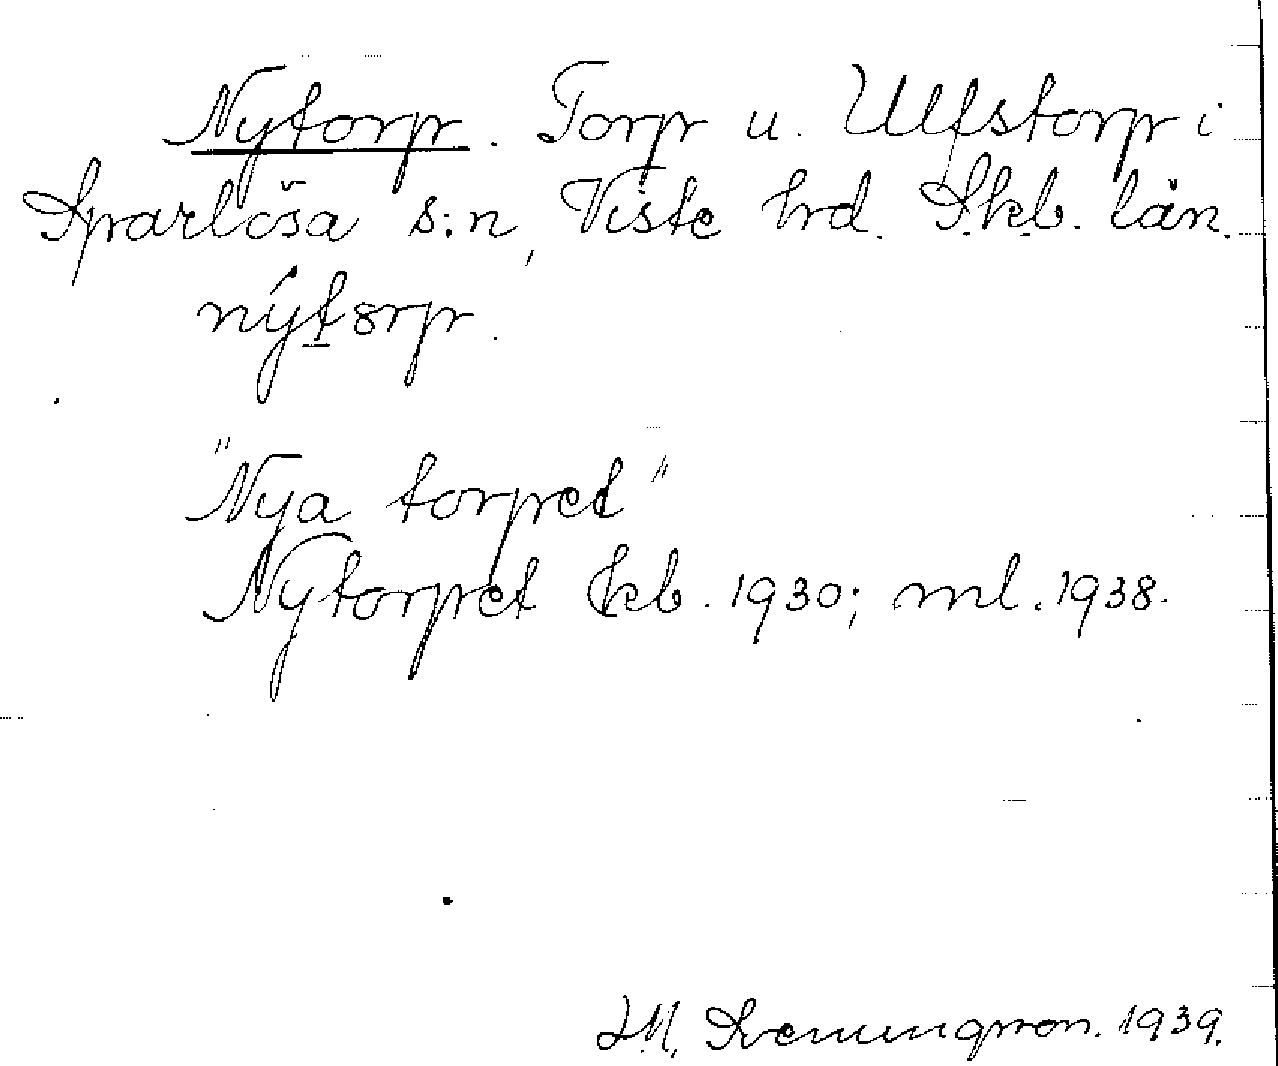 Nytorp. Torp u. Ulfstorp i
Sparlösa s:n, Viste hrd. Skb. län.
nýtorp.
"Nya torpet"
Nytorpet kb. 1930; ml. 1938.
1939.